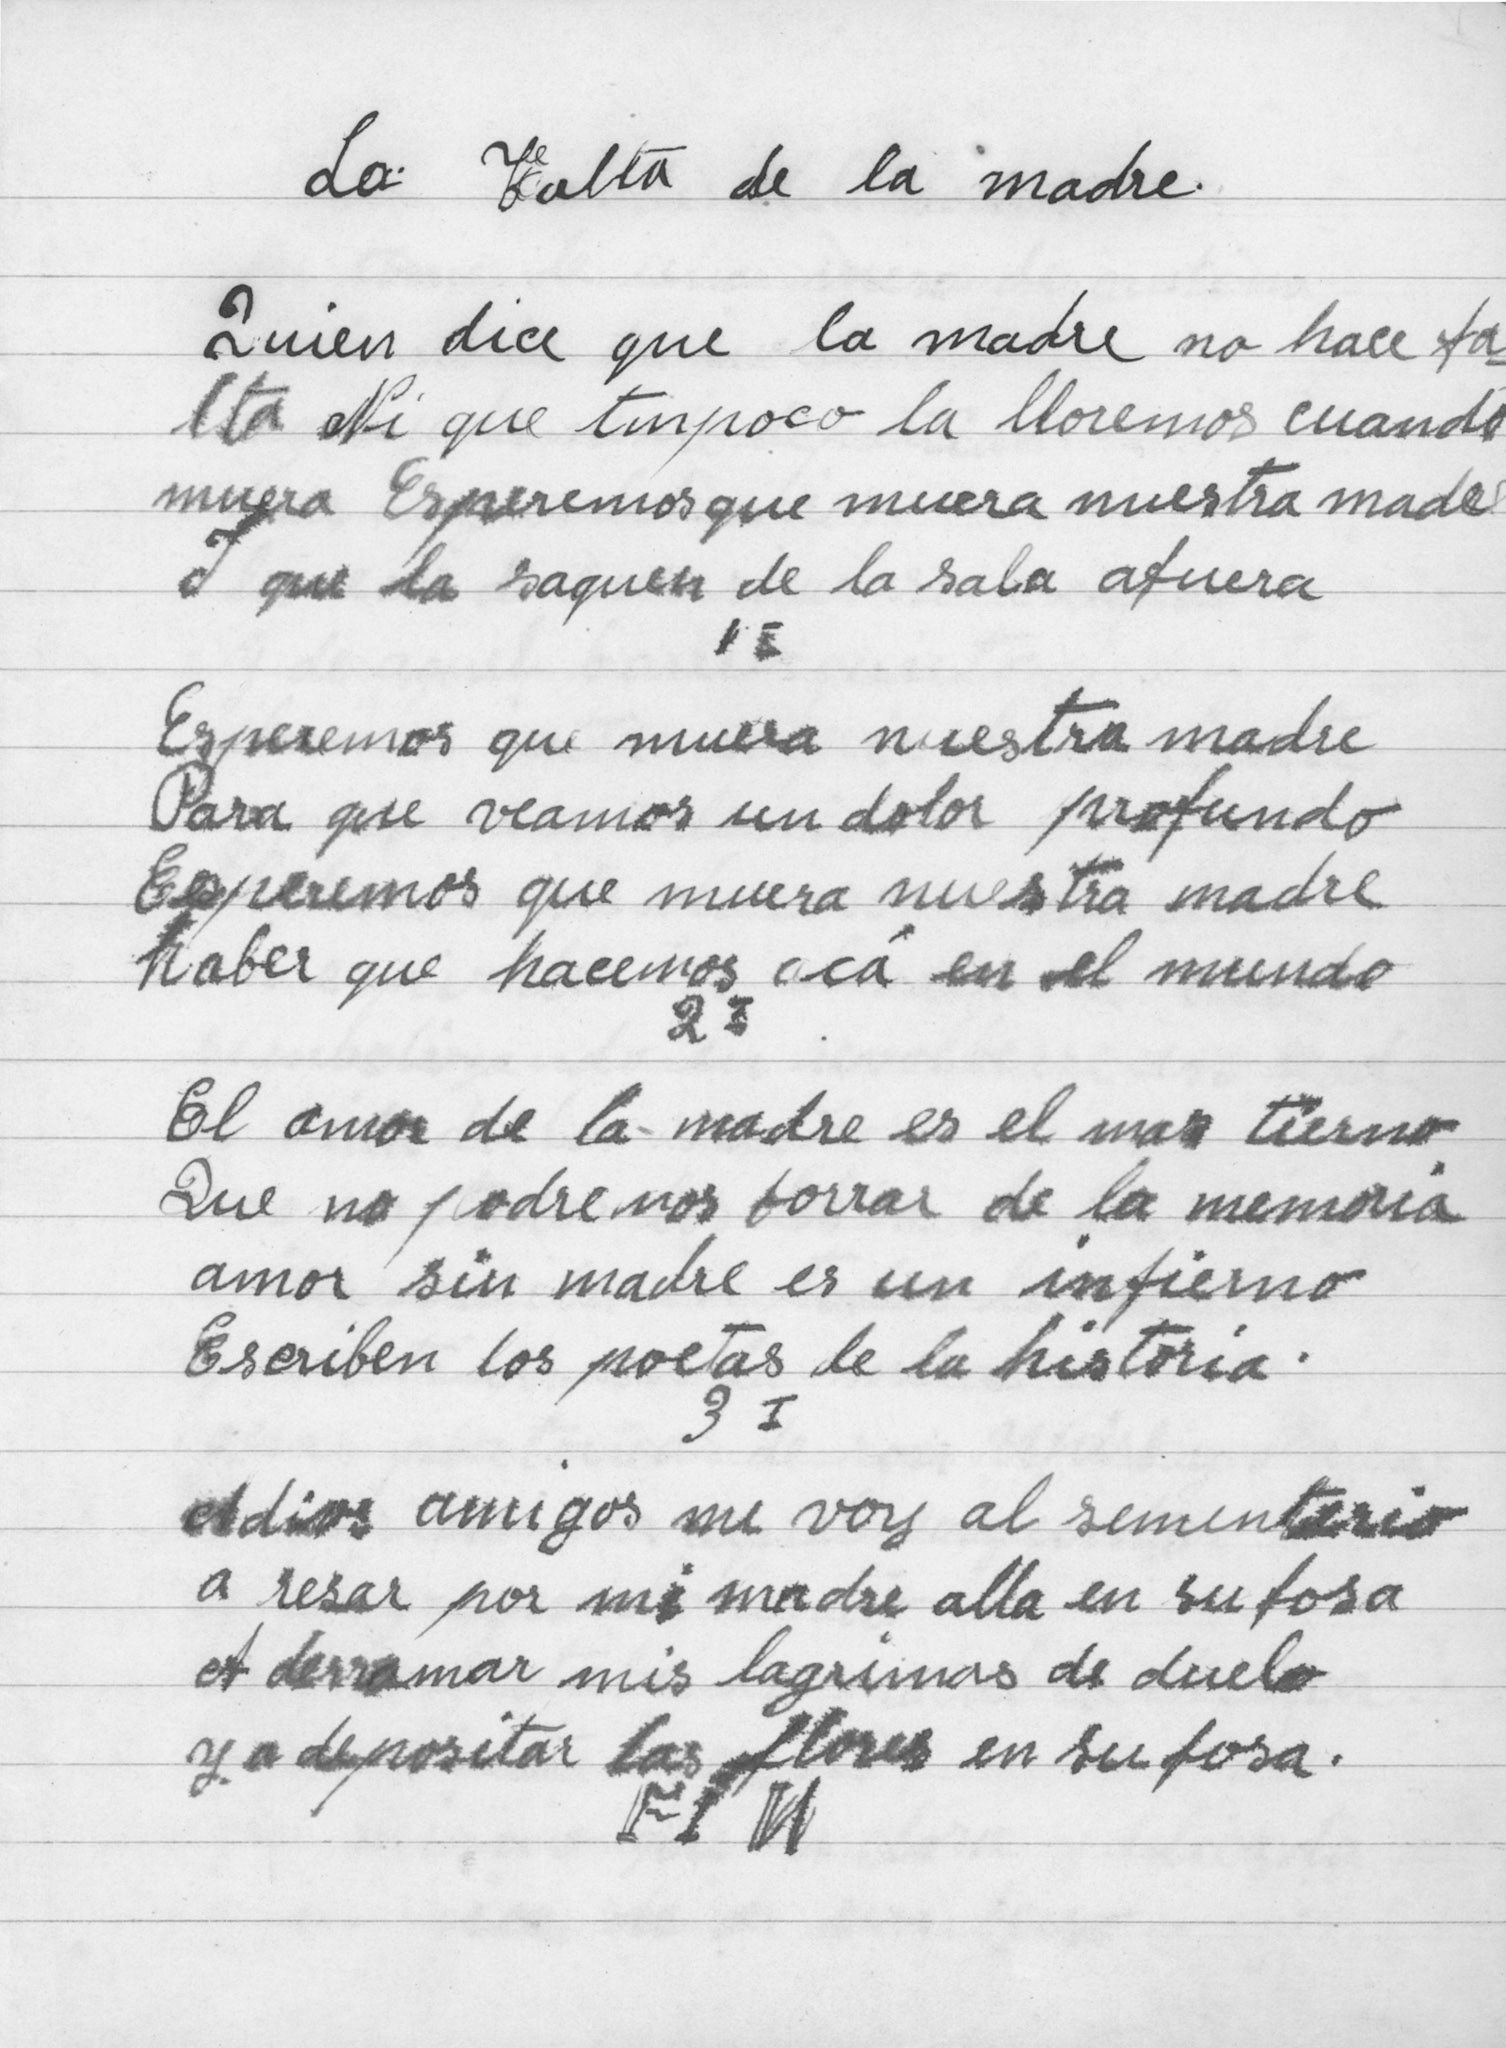 La Falta de la madre.
Quien dice que la madre no hace fa-
lta Ni que tinpoco la lloremos cuando
muera Esperemos que muera nuestra madre
I que la saquen de la sala afuera
1 I
Esperemos que muera nuestra madre
Para que veamos un dolor profundo
Esperemos que muera nuestra madre
haber que hacemos acá en el mundo
2 I
El amor de la madre es el mas tierno
Que no podremos borrar de la memoria
amor sin madre es un infierno
Escriben los poetas de la historia.
3 I
Adios amigos me voy al sementerio
a resar por mi madre alla en su fosa
A derramar mis lagrimas de duelo
y a depositar las flores en su fosa.
FIN